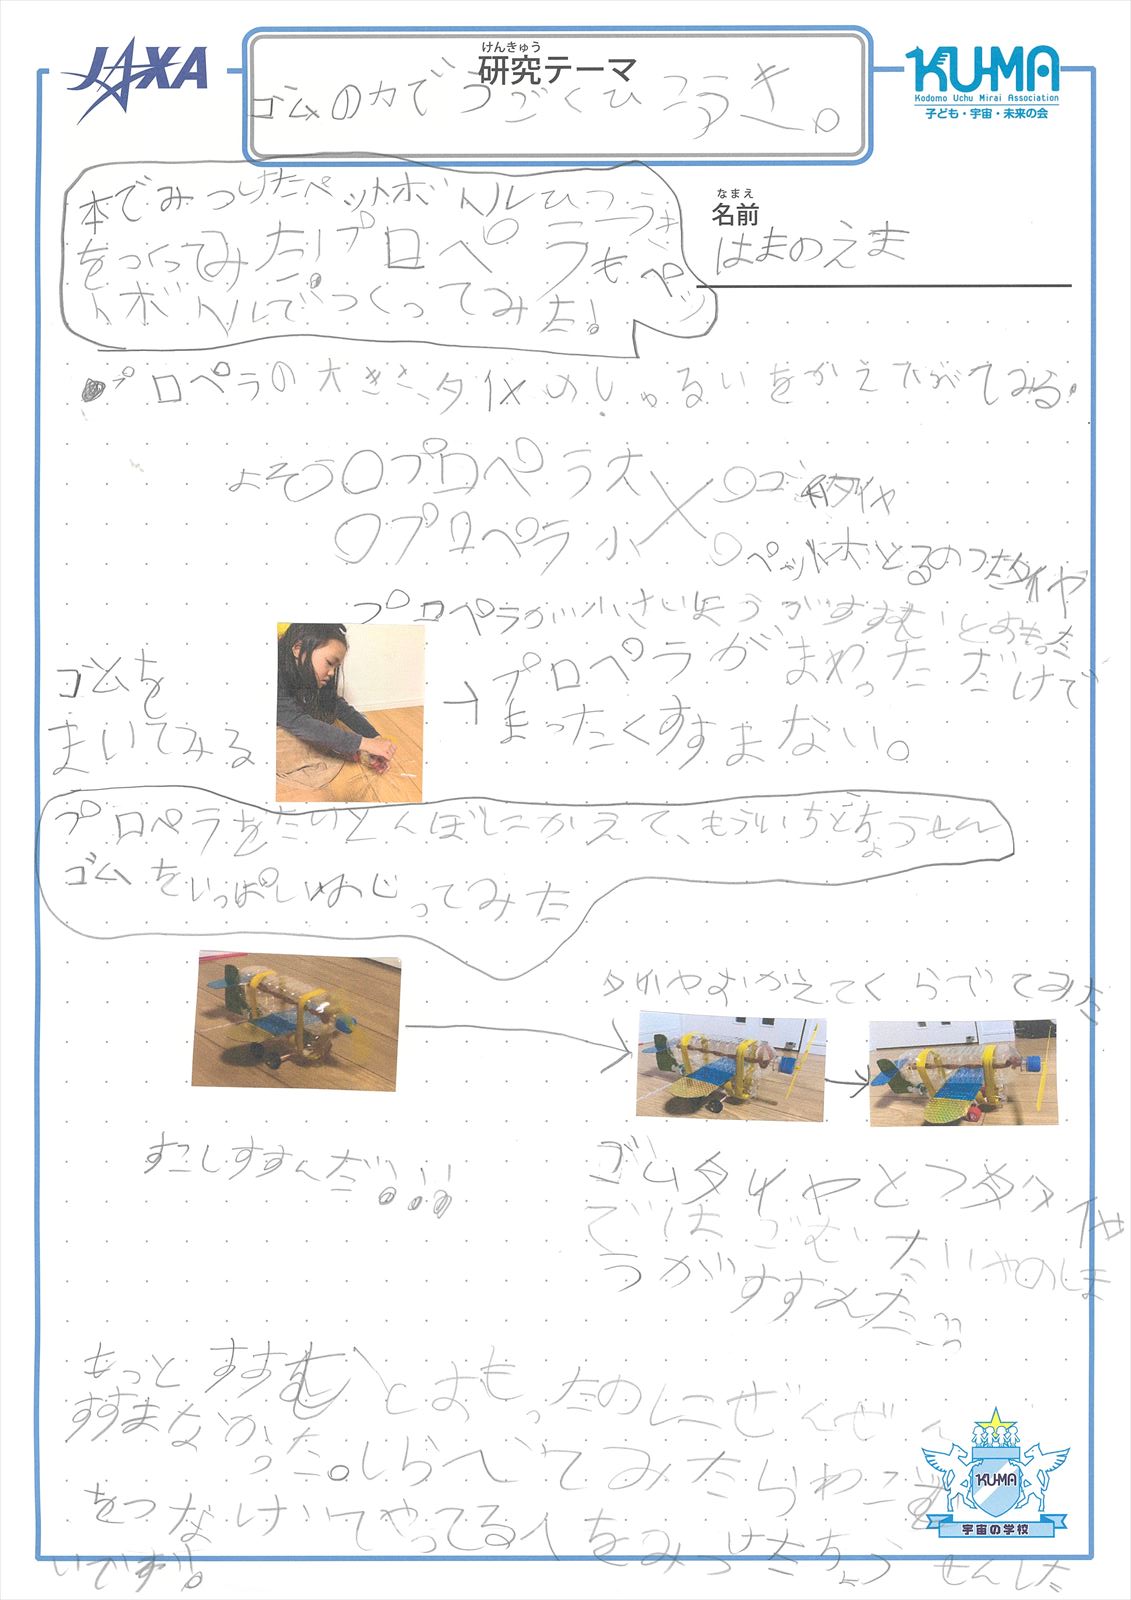 JAXA
けんきゅう
研究テーマ
ゴムの力でうごくひこうき。
KU-MA
Kodomo Uchu Mirai Association
子ども・宇宙・未来の会
本でみつけたペットボトルひこうき
をつくってみた!プロペラもペッ
トボトルでつくってみた!
なまえ
名前
はまのえま
プロペラの大きさタイヤのしゅるいをかえたがてみる。
よそう〇プロペラ大 〇ゴムタイヤ
〇プロペラ小 〇ペットボとるのふたタイヤ
プロペラが小さいほうがすすむとおもった
ゴムを
まいてみる
→プロペラがまわっただけで
まったくすすまない。
プロペラをたけとんぼにかえて、もういちどちょうせん
ゴムをいっぱいねじってみた
タイヤおかえてくらべてみた
すこしすすんだ!!!
ゴムタイヤとフタタイヤ
ではごむたいやのほ
うがすすんだ!!
もっとすすむとおもったのにぜんぜん
すすまなかった。しらべてみたらわごむ
をつなげてやってる人をみつけたちょうせんした
いです!!
KU-MA
宇宙の学校